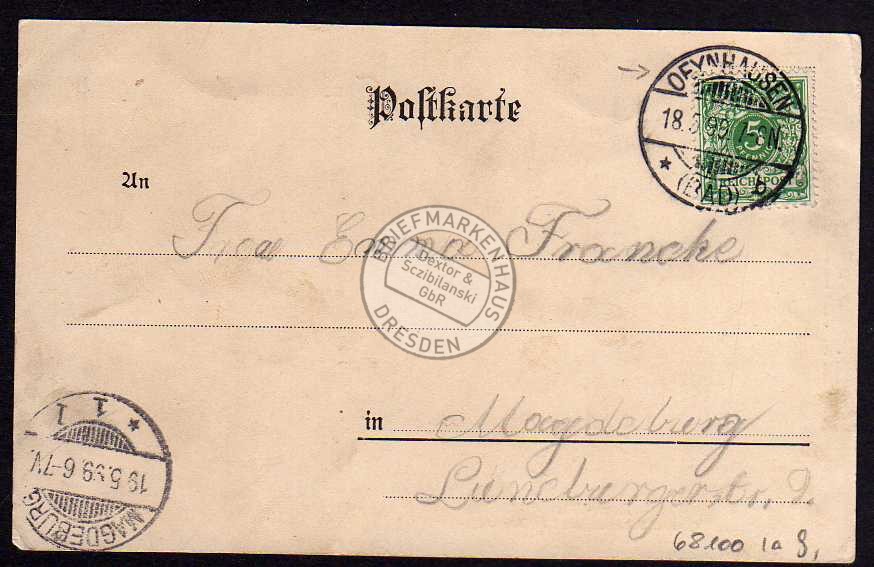 Postkarte
OEYNHAUSEN
18.5.99 7-8N.
* (BAD) b
5
REICHSPOST
An
Frau Emma Francke
BRIEFMARKENHAUS
Dextor &
Sczibilanski
GbR
DRESDEN
in Magdeburg
Lüneburgerstr.
MAGDEBURG
19.5.99 6-7V.
* 1 1
68100 1a